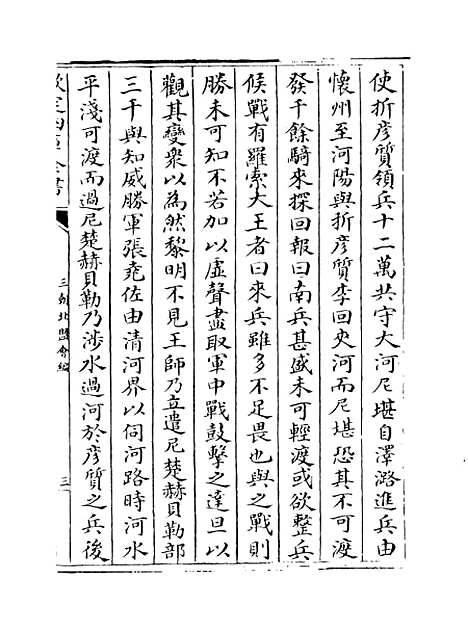 使折彦質領兵十二萬共守大河尼堪自澤潞進兵由
懷州至河陽與折彦質李回夾河而尼堪恐其不可渡
發千餘騎來探回報曰南兵甚盛未可輕渡或欲整兵
候戰有羅索大王者曰來兵雖多不足畏也與之戰則
勝未可知不若加以虚聲盡取軍中戰鼓擊之達旦以
觀其變衆以為然黎明不見王師乃立遣尼楚赫貝勒部
三千與知威勝軍張堯佐由清河界以伺河路時河水
平淺可渡而過尼楚赫貝勒乃涉水過河於彦質之兵後
欽定四庫全書
三朝北盟會編
三